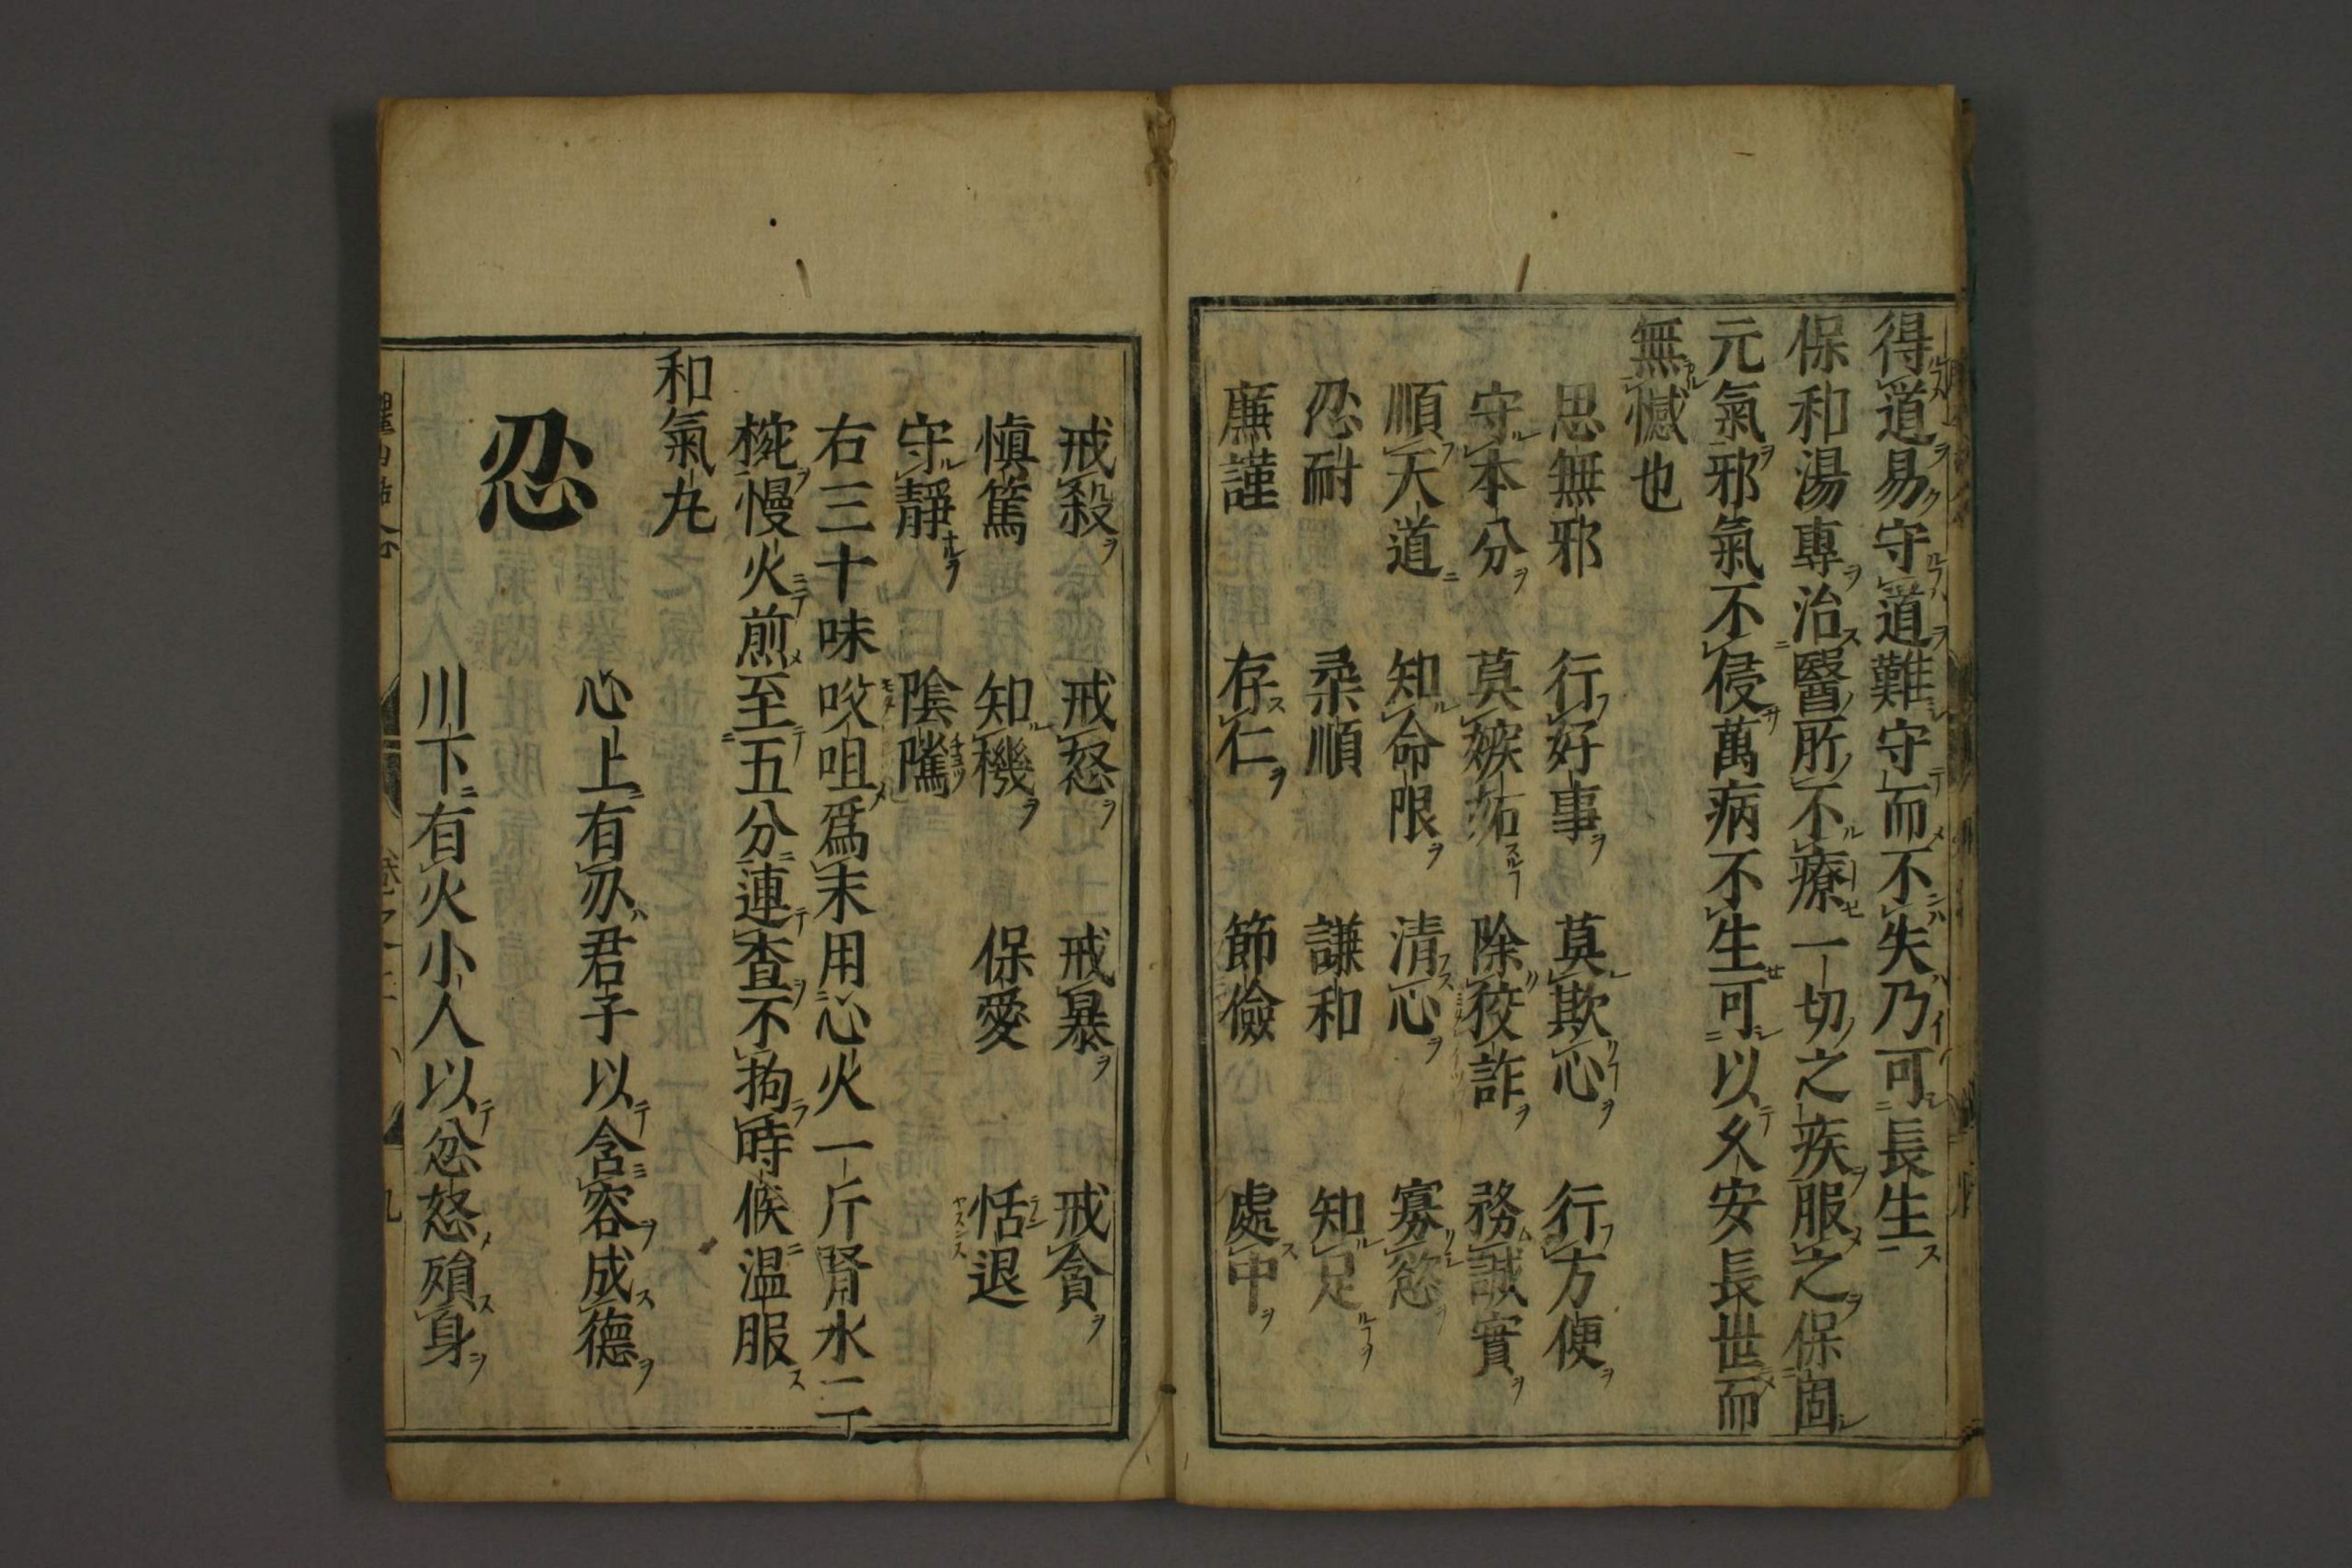 得道易守道難守而不失乃可長生
保和湯專治醫所不療一切之疾服之保固
元氣邪氣不侵萬病不生可以久安長世而
無憾也
思無邪 行好事 莫欺心 行方便
守本分 莫嫉妬 除狡詐 務誠實
順天道 知命限 清心 寡慾
忍耐 柔順 謙和 知足
廉謹 存仁 節儉 處中
戒殺 戒怒 戒暴 戒貪
慎篤 知機 保愛 恬退
守靜 陰騭
右三十味㕮咀為末用心火一斤腎水二
椀慢火煎至五分連查不拘時候温服
和氣丸
忍
心上有刃君子以含容成德
川下有火小人以忿怒殞身